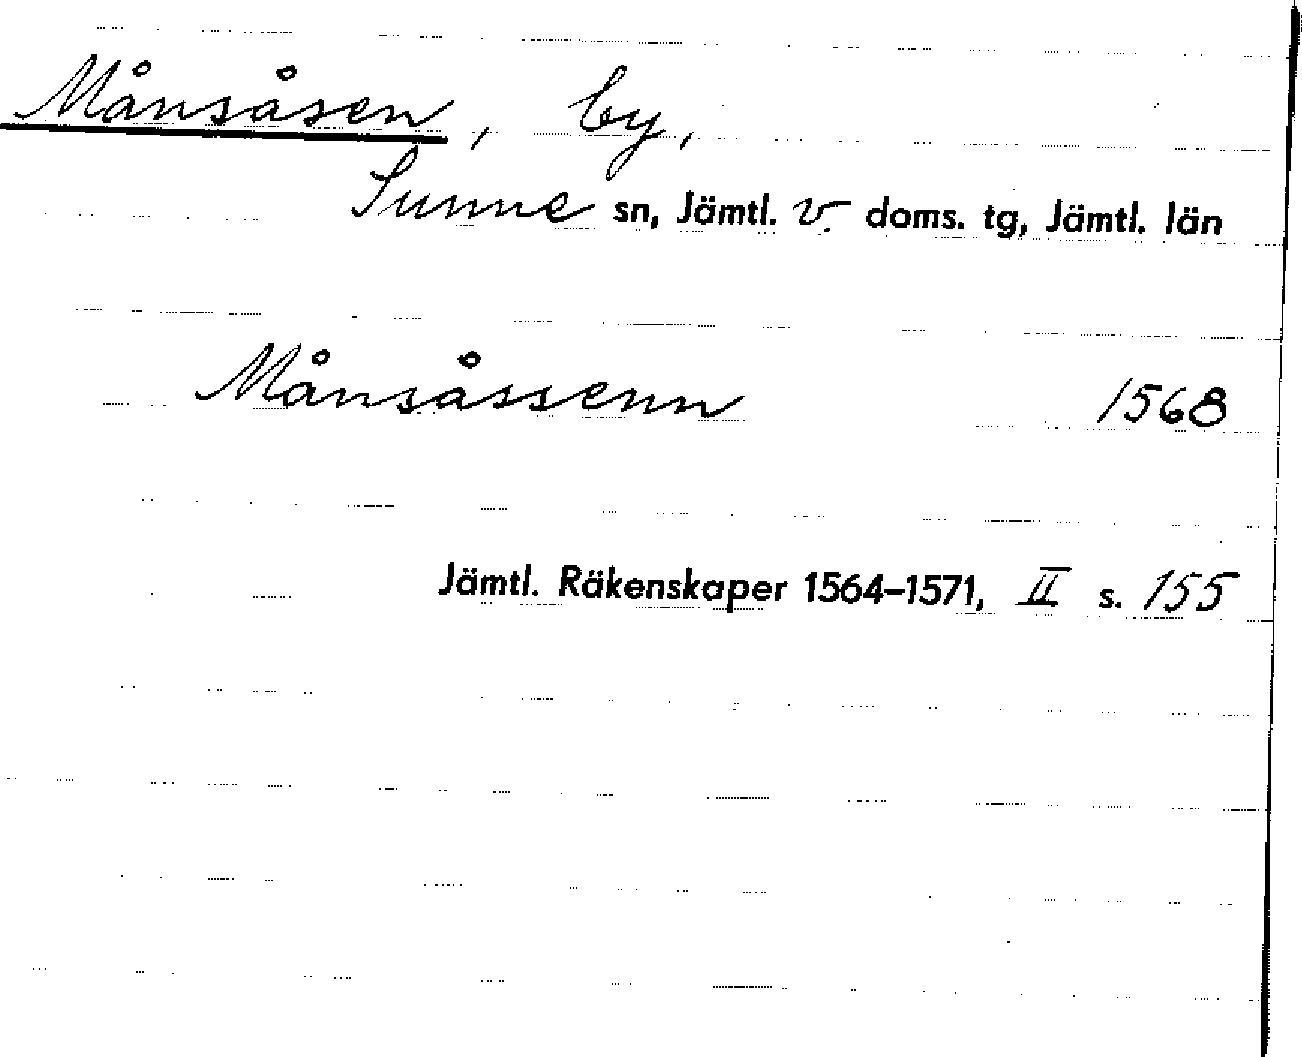 Månsåsen, by,
Sunne sn, Jämtl. v. doms. tg, Jämtl. län
Månsåssenn 1568
Jämtl. Räkenskaper 1564–1571, II s. 155